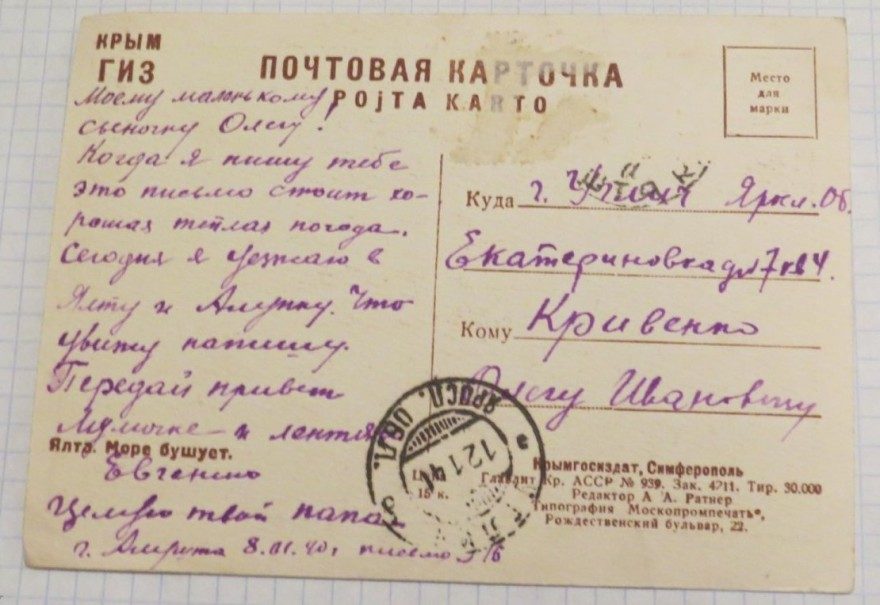 КРЫМ
ГИЗ
ПОЧТОВАЯ КАРТОЧКА
POJTA KARTO
Место
для
марки
Моему маленькому
сыночку Олегу!
Когда я пишу тебе
это письмо стоит хо-
рошая теплая погода.
Сегодня я уезжаю в
Ялту и Алупку. Что
увижу напишу.
Передай привет
Мумочке и
Евгению
Целую твой папа
г. 8 40г письмо
Ялта. Море бушует.
Куда г. Углич Яркл. Об.
Екатериновка д 7 кв 4
Кому Кривенко
Олегу Ивановичу
ЯРОСЛ. ОБЛ.
12 1 41
Цена
15 к.
Крымгосиздат, Симферополь
Главлит Кр. АССР № 939. Зак. 4711. Тир. 30.000
Редактор А. А. Ратнер
Типография Москопромпечать",
Рождественский бульвар, 22.